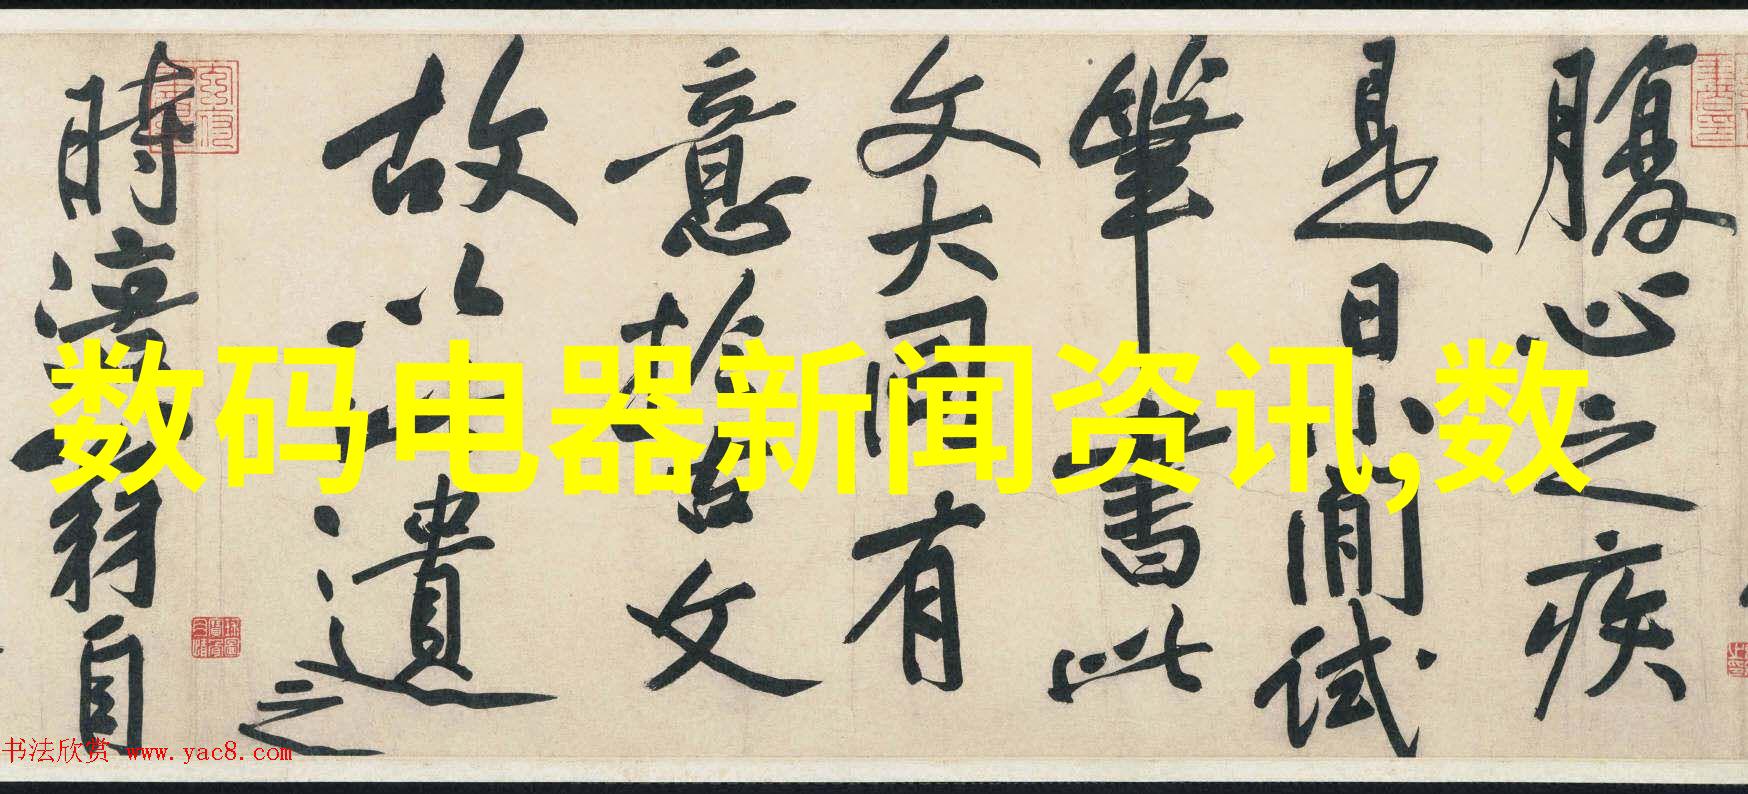 腹心之疾
是日小閒試
筆書此
文大同有
意於古文
故以此遺之
時涪翁自
数码电器新闻资讯,数
书法欣赏 www.yac8.com